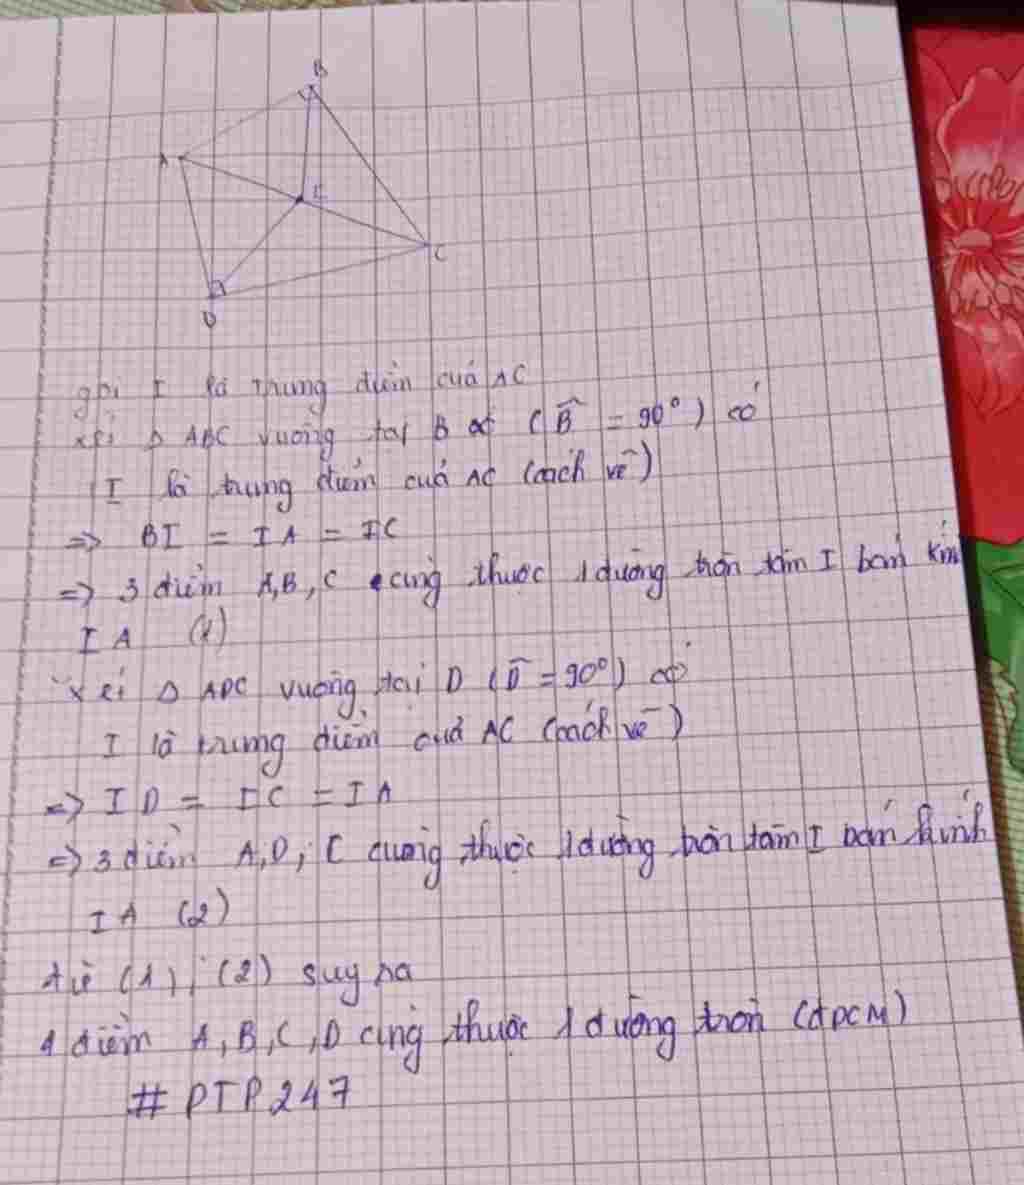 B
A
I
C
D
gọi I là trung điểm của AC
xét Δ ABC vuông tại B (B̂ = 90°) có
I là trung điểm của AC (cách vẽ)
=> BI = IA = IC
=> 3 điểm A, B, C cùng thuộc 1 đường tròn tâm I bán kín
IA (1)
Xét Δ ADC vuông tại D (D̂ = 90°) có
I là trung điểm của AC (cách vẽ)
=> ID = IC = IA
=> 3 điểm A, D, C cùng thuộc 1 đường tròn tâm I bán kính
IA (2)
từ (1), (2) suy ra
4 điểm A, B, C, D cùng thuộc 1 đường tròn (đpcM)
# PTP247